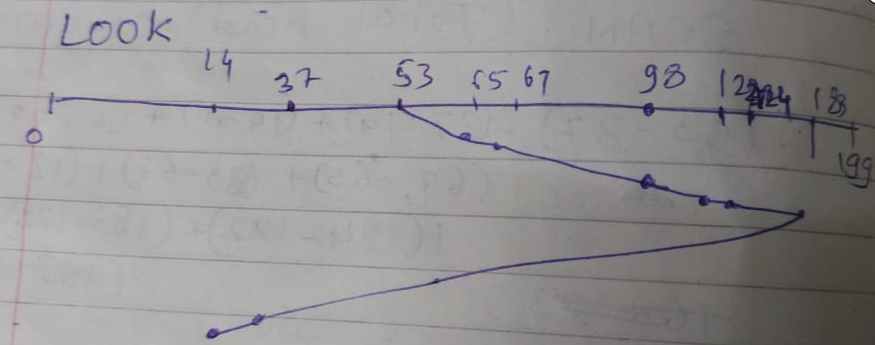 LOOK
14 37 53 65 67 98 122 124
0 199